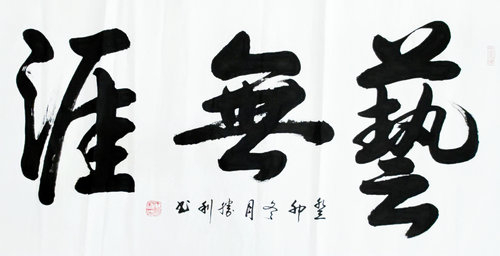 藝無涯
癸卯冬月勝利書